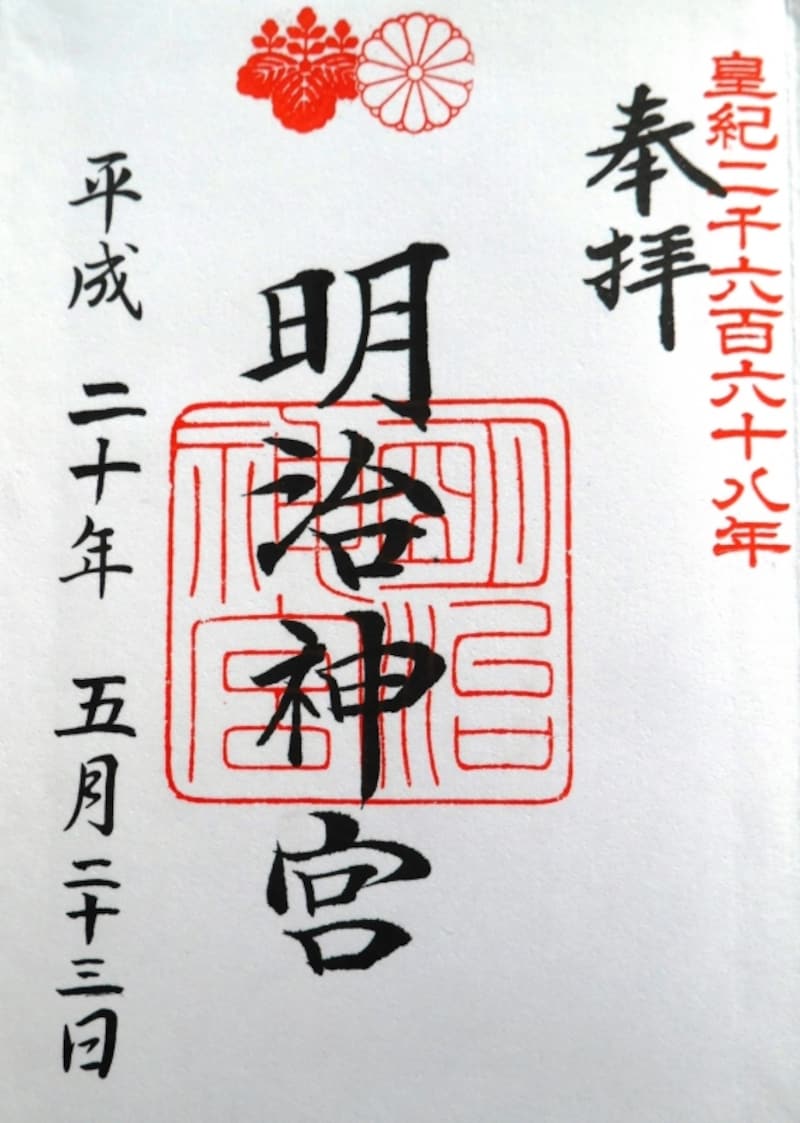 皇紀二千六百六十八年
奉拝
明治神宮
明治
神宮
平成 二十年 五月二十三日